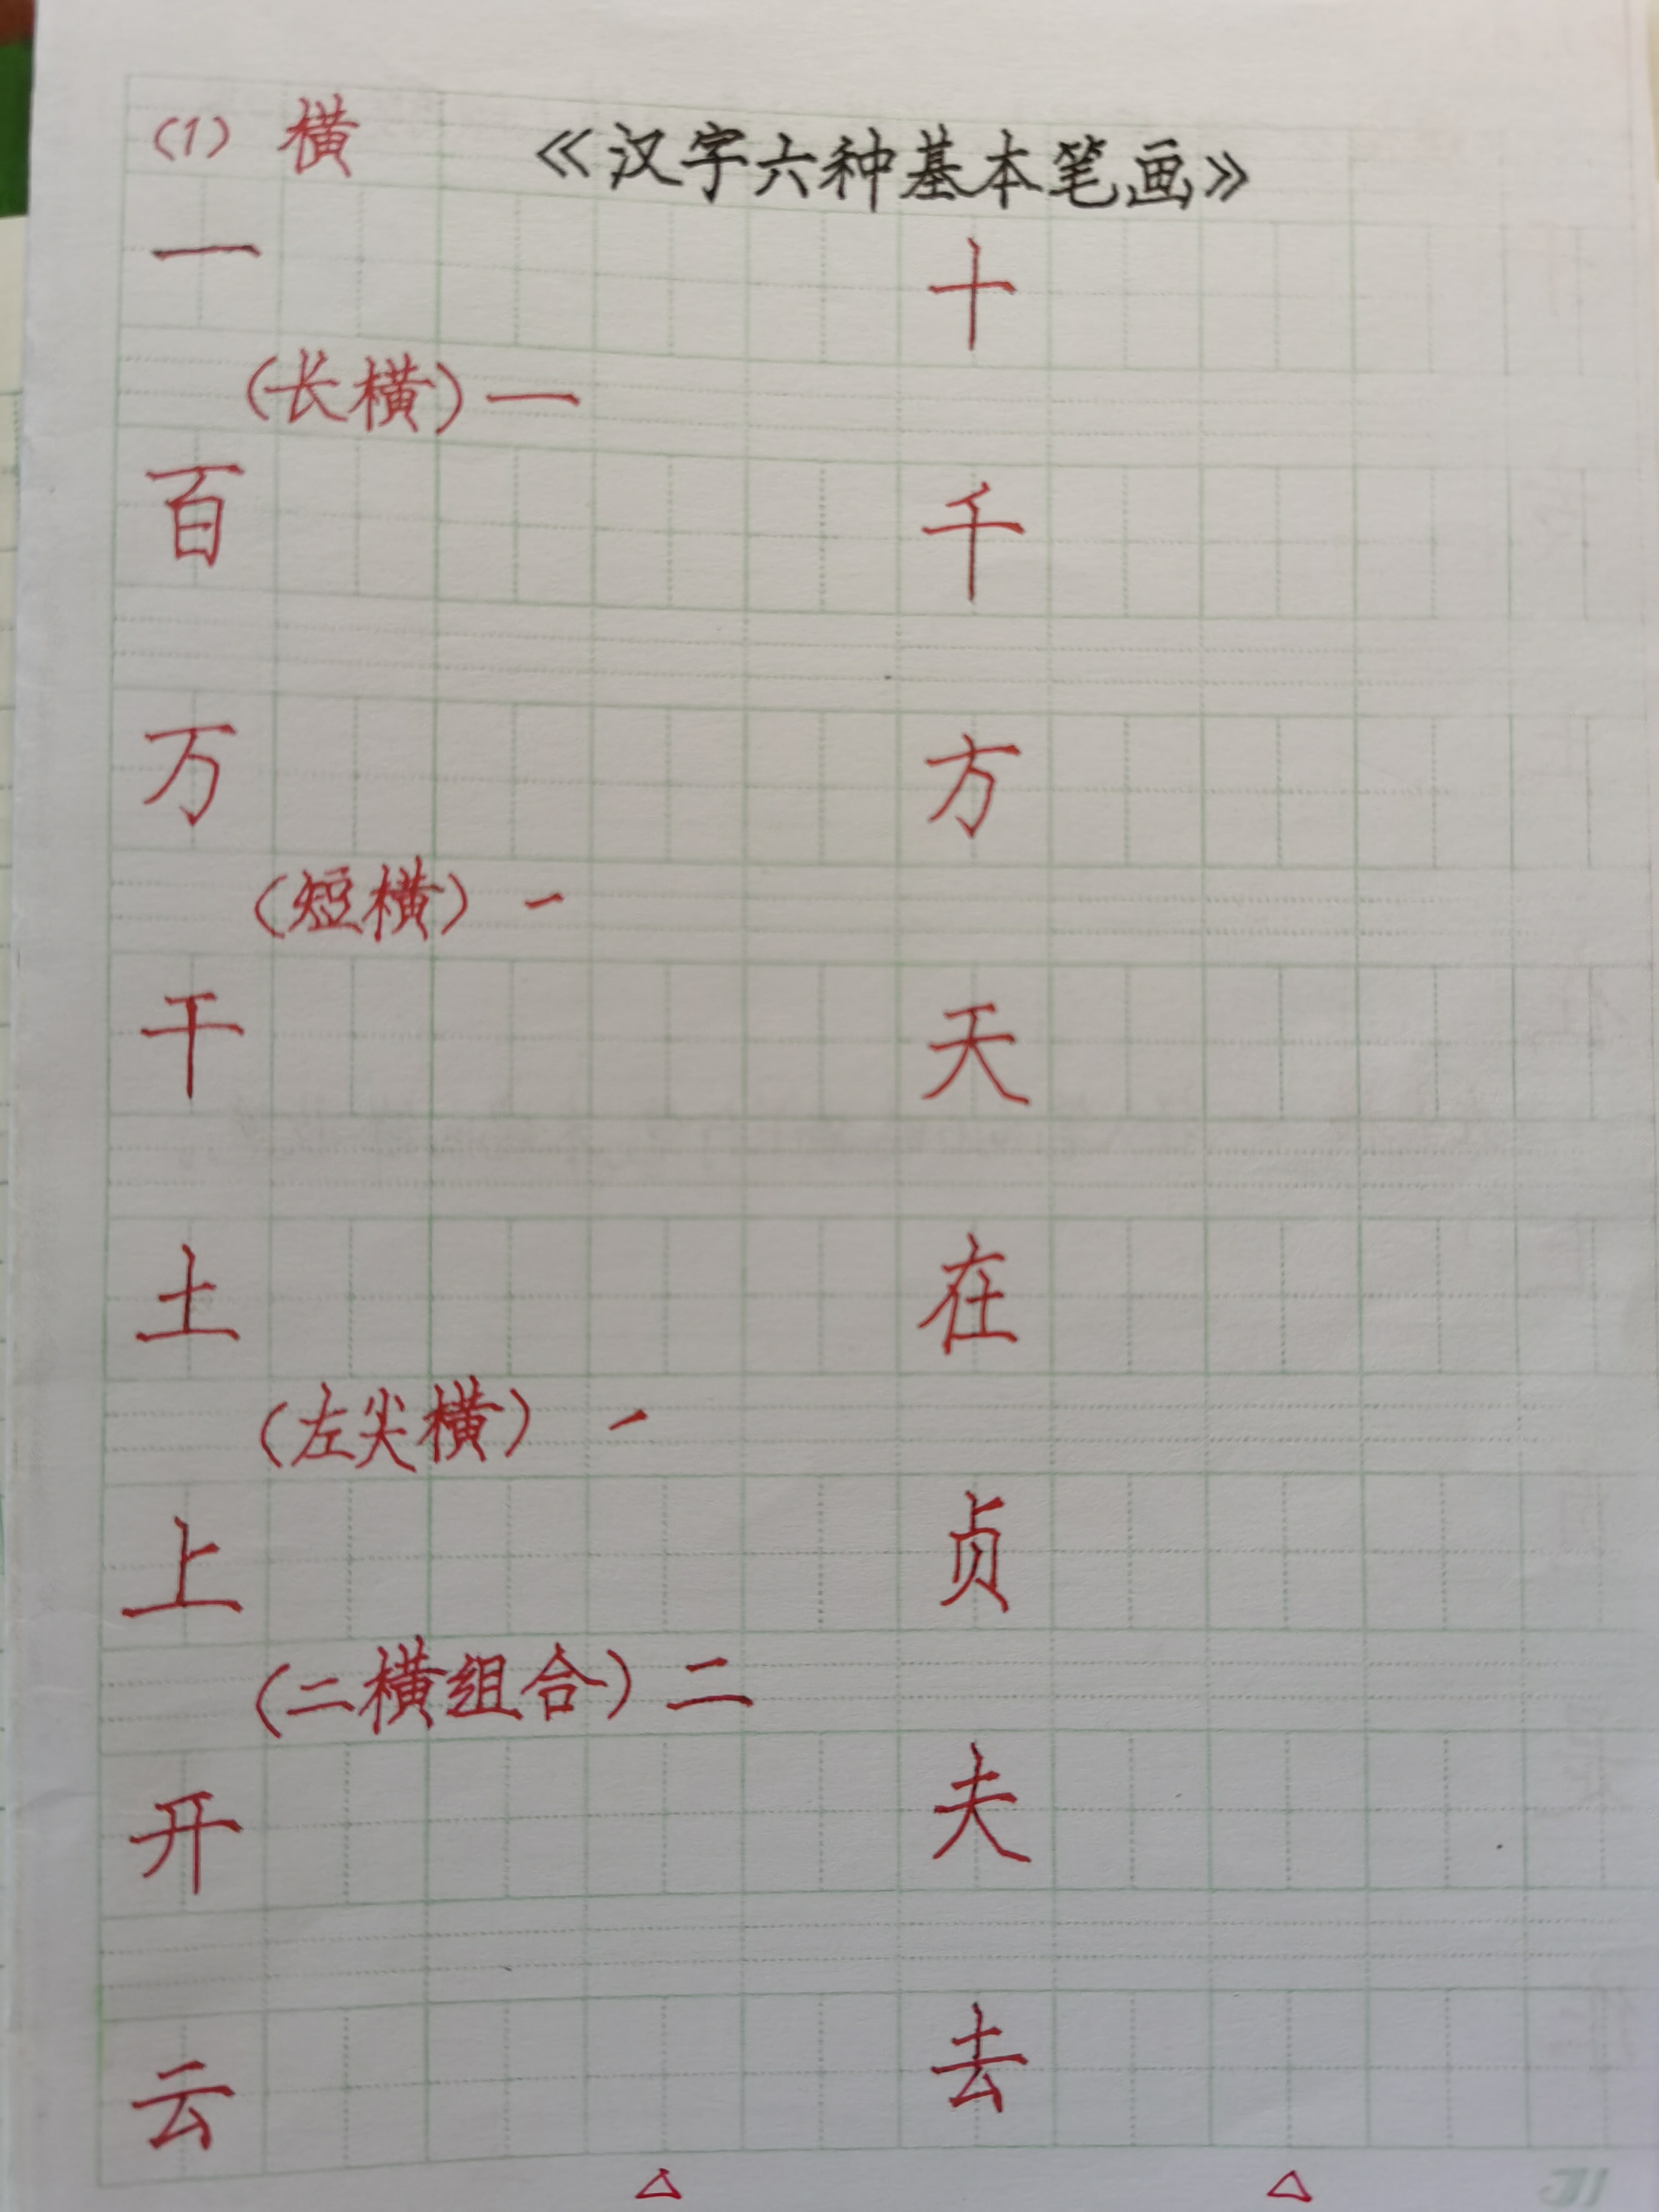 (1) 横 《汉字六种基本笔画》
一 十
(长横) 一
百 千
万 方
(短横) 一
干 天
土 在
(左尖横) 一
上 贞
(二横组合) 二
开 夫
云 去